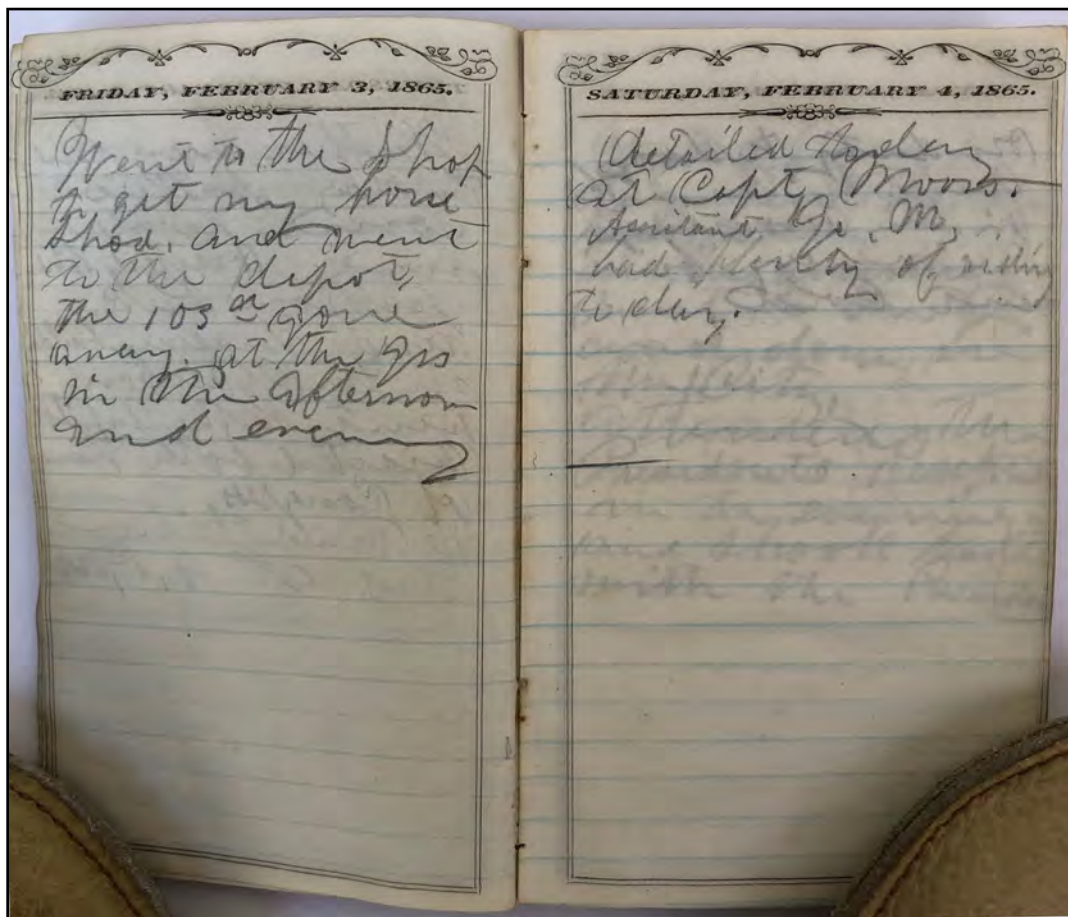 FRIDAY, FEBRUARY 3, 1865.
Went to the Shop
to get my horse
Shod. and went
to the depot,
the 103d gone
away. at the
in the afternoon
and evening
SATURDAY, FEBRUARY 4, 1865.
Detailed today
at Capt, Moors.
Assitant Qr. M.
had plenty of riding
to day.